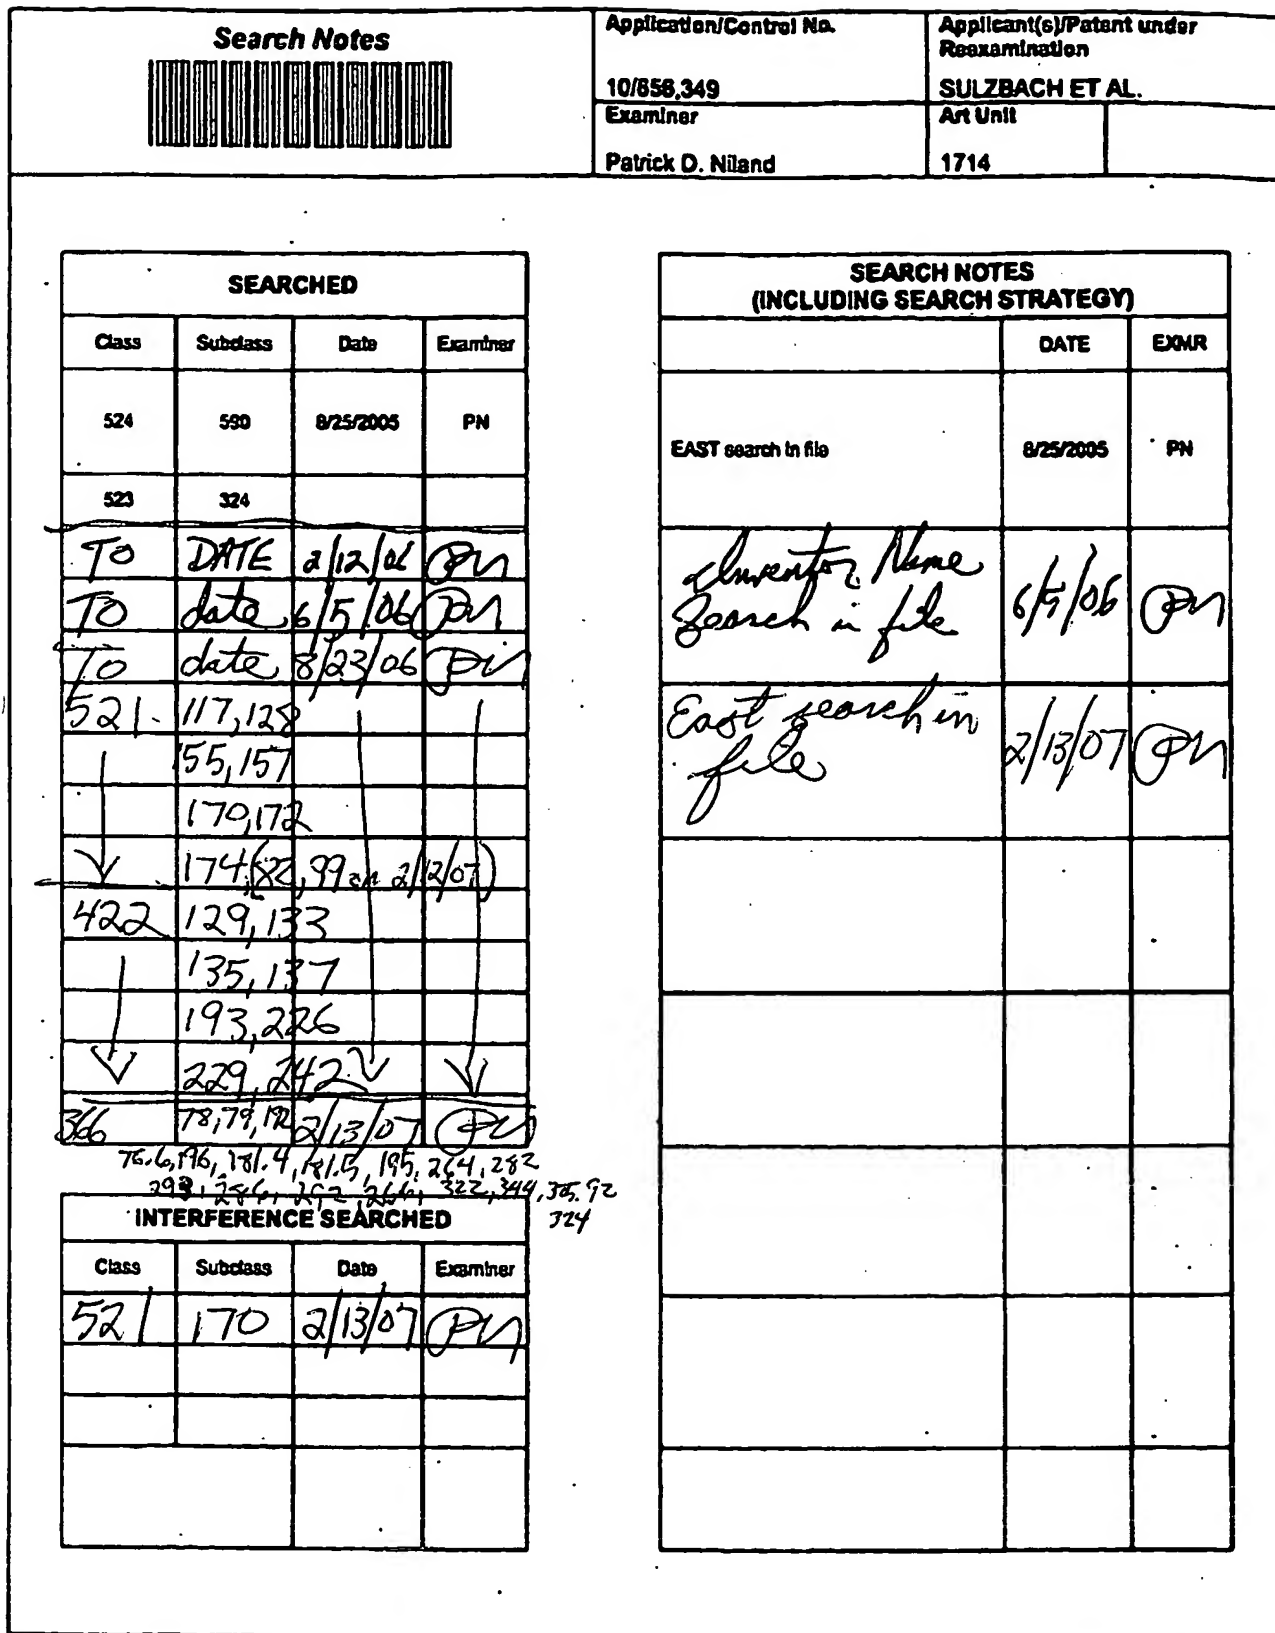 Search Notes
Application/Control No.
10/656,349
Applicant(s)/Patent under
Reexamination
SULZBACH ET AL.
Examiner
Patrick D. Niland
Art Unit
1714
SEARCHED
Class Subclass Date Examiner
524 590 8/25/2005 PN
523 324
TO DATE 2/12/06 PN
TO date 6/5/06 PN
TO date 8/23/06 PN
521 117,128
155,157
170,172
174, (82, 99 on 2/12/07)
422 129,133
135,137
193,226
229,242
366 78,79,192 2/13/07 PN
76.6,196,181.4,181.5,195,264,282
293,286,292,266,322,344,
324
INTERFERENCE SEARCHED
Class Subclass Date Examiner
521 170 2/13/07 PN
SEARCH NOTES
(INCLUDING SEARCH STRATEGY)
DATE EXMR
EAST search in file 8/25/2005 PN
Inventor Name
Search in file 6/5/06 PN
East search in
file 2/13/07 PN